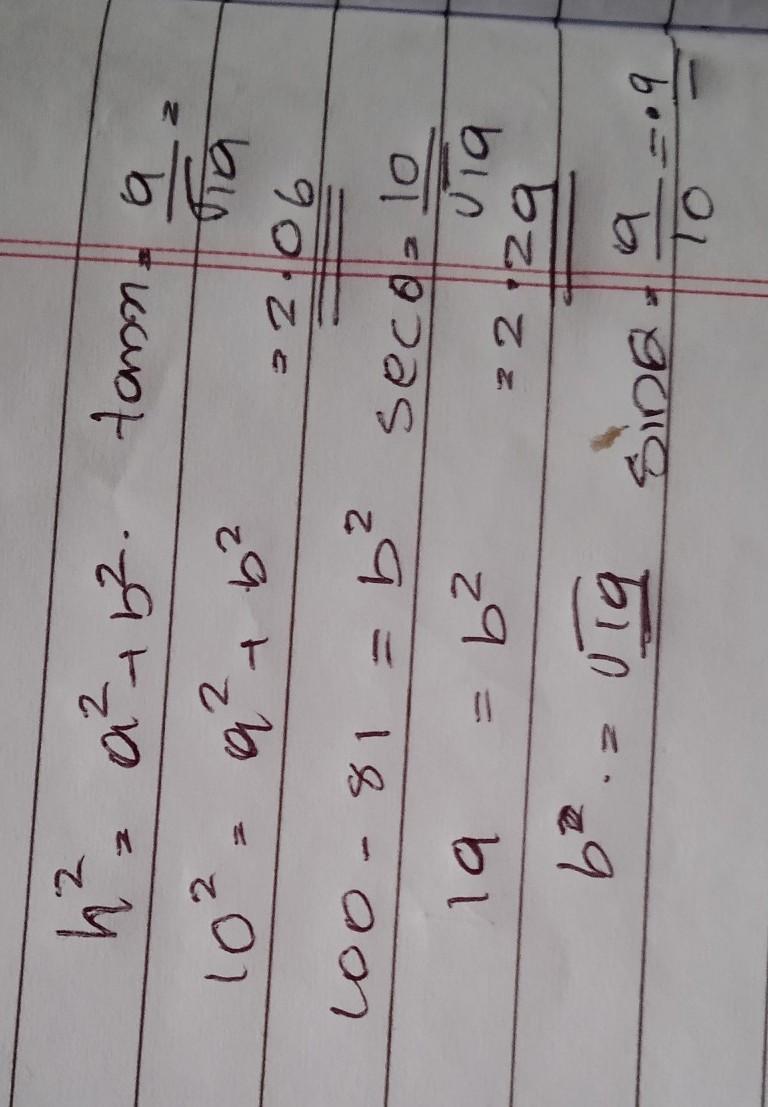 h² = a² + b².
10² = 9² + b²
100 - 81 = b²
19 = b²
b² . = √19
tan x = 9/√19 =
= 2.06
sec θ = 10/√19
= 2.29
sin θ = 9/10 = .9